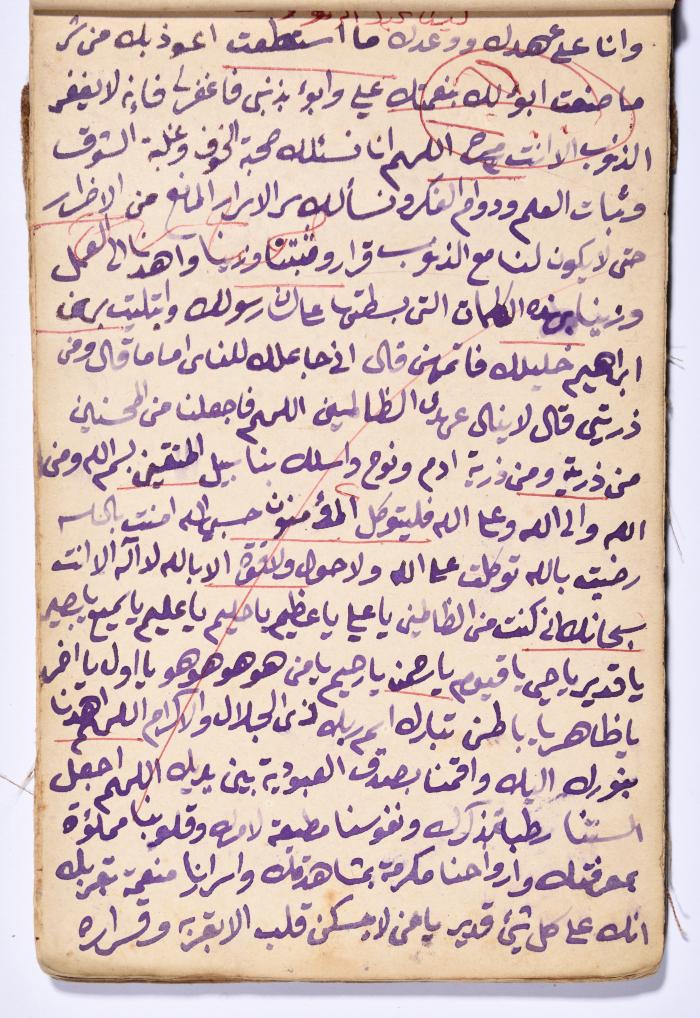 وانا على عهدك ووعدك ما استطعت اعوذ بك من شر
ما صنعت ابوؤلك بنعمتك علي وابوؤ بذنبي فاغفر لي فانه لا يغفر
الذنوب الا انت اللهم انا نسئلك صحبة الخوف وغلبة الشوق
وثبات العلم ودوام الفكر ونسألك سر الاسرار المانع من الاضرار
حتى لا يكون لنا مع الذنوب قرار وثبتنا واهدنا الى العمل
وزينا بهذه الكلمات التي بسطتها على لسان رسولك وابتليت بهن
ابراهيم خليلك فاتمهن قال اني جاعلك للناس اماما قال ومن
ذريتي قال لا ينال عهدي الظالمين اللهم فاجعلنا من المحسنين
من ذرية ومن ذرية ادم ونوح واسلك بنا سبيل المتقين بسم الله ومن
الله والى الله وعلى الله فليتوكل المؤمنون حسبي الله امنت بالله
رضيت بالله توكلت على الله ولا حول ولا قوة الا بالله لا اله الا انت
سبحانك اني كنت من الظالمين يا علي يا عظيم يا حليم يا عليم يا سميع يا بصير
يا قدير يا حي يا قيوم يا رحمن يا رحيم يا من هو هو هو هو يا اول يا اخر
يا ظاهر يا باطن تبارك اسم ربك ذي الجلال والاكرام اللهم اهدنا
بنورك اليك واقمنا بصدق العبودية بين يديك اللهم اجعل
السنتنا رطبة بذكرك ونفوسنا مطيعة لامرك وقلوبنا مملؤة
بمعرفتك وارواحنا مكرمة بمشاهدتك واسرارنا منعمة بقربك
انك على كل شيئ قدير يا من لا يسكن قلب الا بقربه وقراره